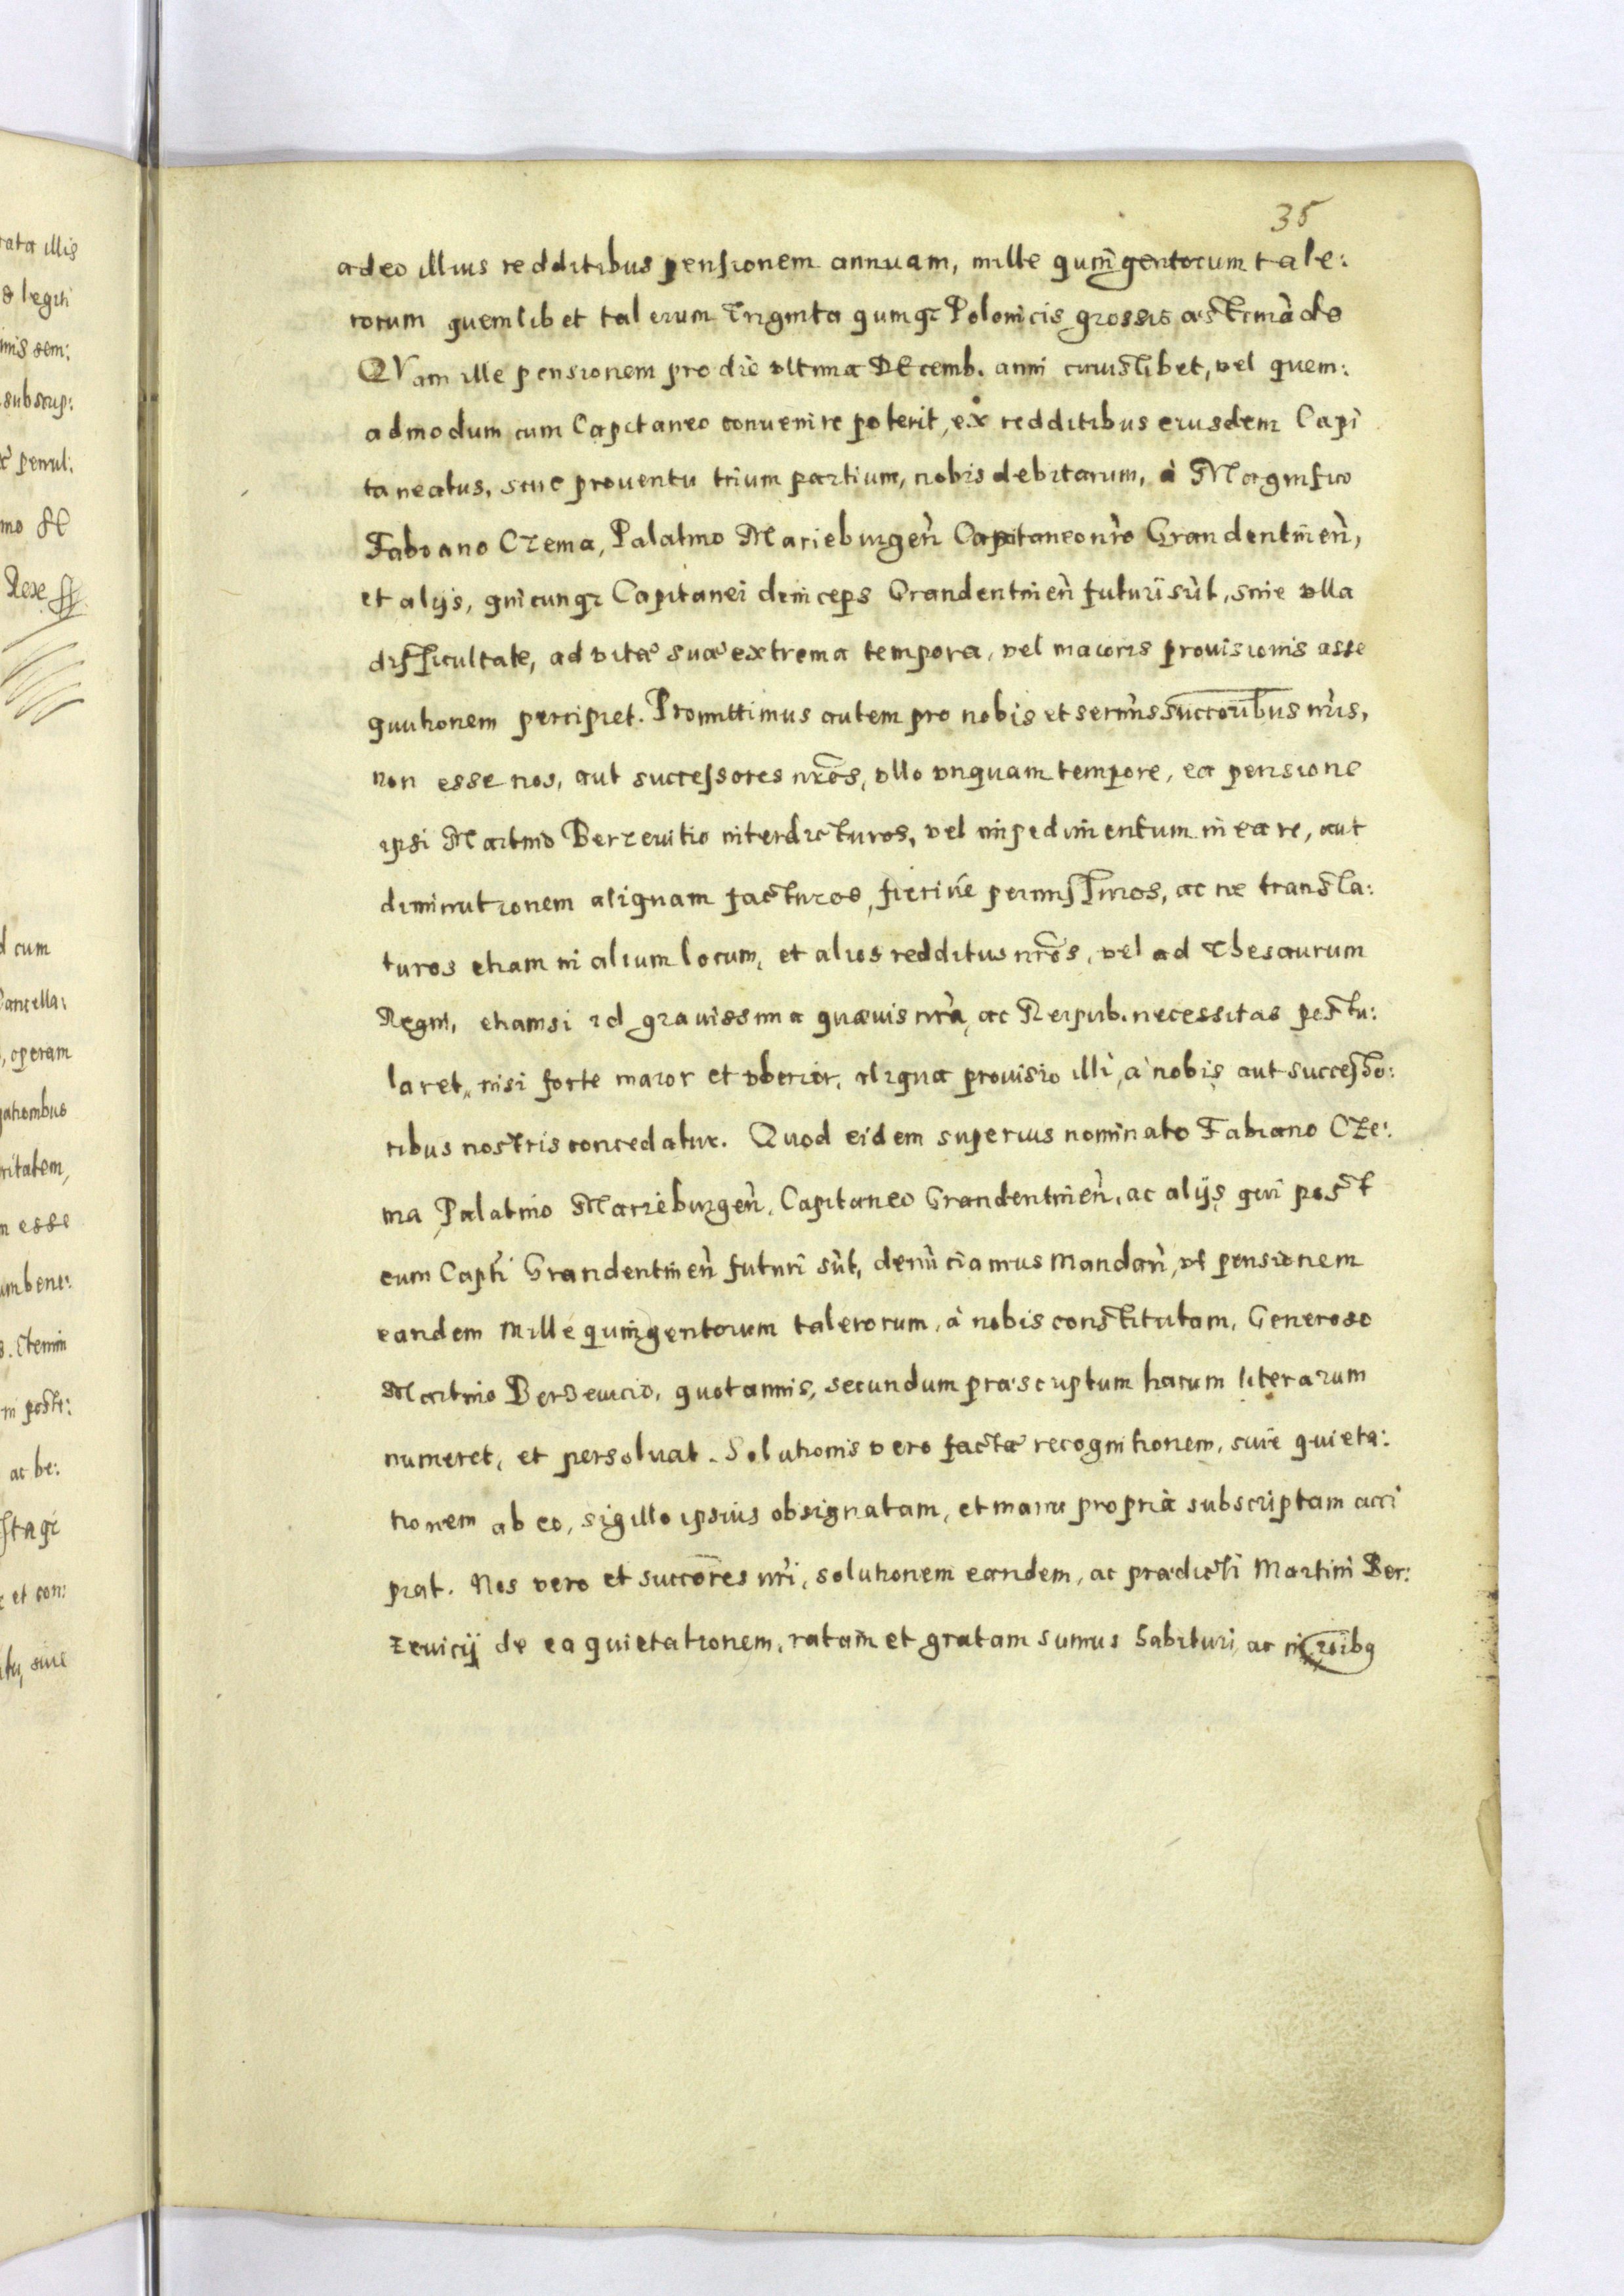 35
adeo illius redditibus pensionem annuam, mille quingentorum tale:
rorum quemlibet talerum triginta quinqz Polonicis grossis æstimãdo
QVam ille pensionem pro die vltima DEcemb. anni cuiuslibet, vel quem:
admodum cum Capitaneo conuenire poterit, ex redditibus eiusdem Capi
taneatus, siue prouentu trium partium, nobis debitarum, à Magnifico
Fabiano Czema, Palatino Marieburgeñ Capitaneo nr̃o Graudentineñ,
et alijs, quicunqz Capitanei deinceps Graudentineñ futuri sũt, sine vlla
difficultate, ad vitæ suæ extrema tempora, vel maioris prouisionis asse
quutionem percipiet. Promittimus autem pro nobis et serm̃is succorib̃us nr̃is,
non esse nos, aut successores nr̃os, vllo vnquam tempore, ea pensione
ipsi Martino Berzeuitio interdicturos, vel impedimentum in ea re, aut
diminutionem aliquam facturos, fieriúe permissuros, ac ne transla:
turos etiam in alium locum, et alios redditus nr̃os, vel ad Thesaurum
Regni, etiamsi id grauissima quæuis nr̃a, ac Reipub. necessitas postu:
laret, nisi forte maior et vberior, aliqua prouisio illi, à nobis aut successo:
ribus nostris concedatur. Quod eidem superius nominato Fabiano Cze:
ma Palatino Marieburgeñ, Capitaneo Graudentineñ, ac alijs qui post
eum Capt̃i Graudentineñ futuri sũt, denũciamus mandañ, vt pensionem
eandem mille quingentorum talerorum, à nobis constitutam, Generoso
Martino Berzeuicio, quotannis, secundum præscriptum harum literarum
numeret, et persoluat. Solutionis vero factæ recognitionem, siue quieta:
tionem ab eo, sigillo ipsius obsignatam, et manu propria subscriptam acci
piat. Nos vero et succores nr̃i, solutionem eandem, ac prædicti Martini Ber:
zeuicij de ea quietationem, ratam et gratam sumus habituri, ac in
rata illis
cum
operam
ritatem,
esse
ac be:
et con:
siue